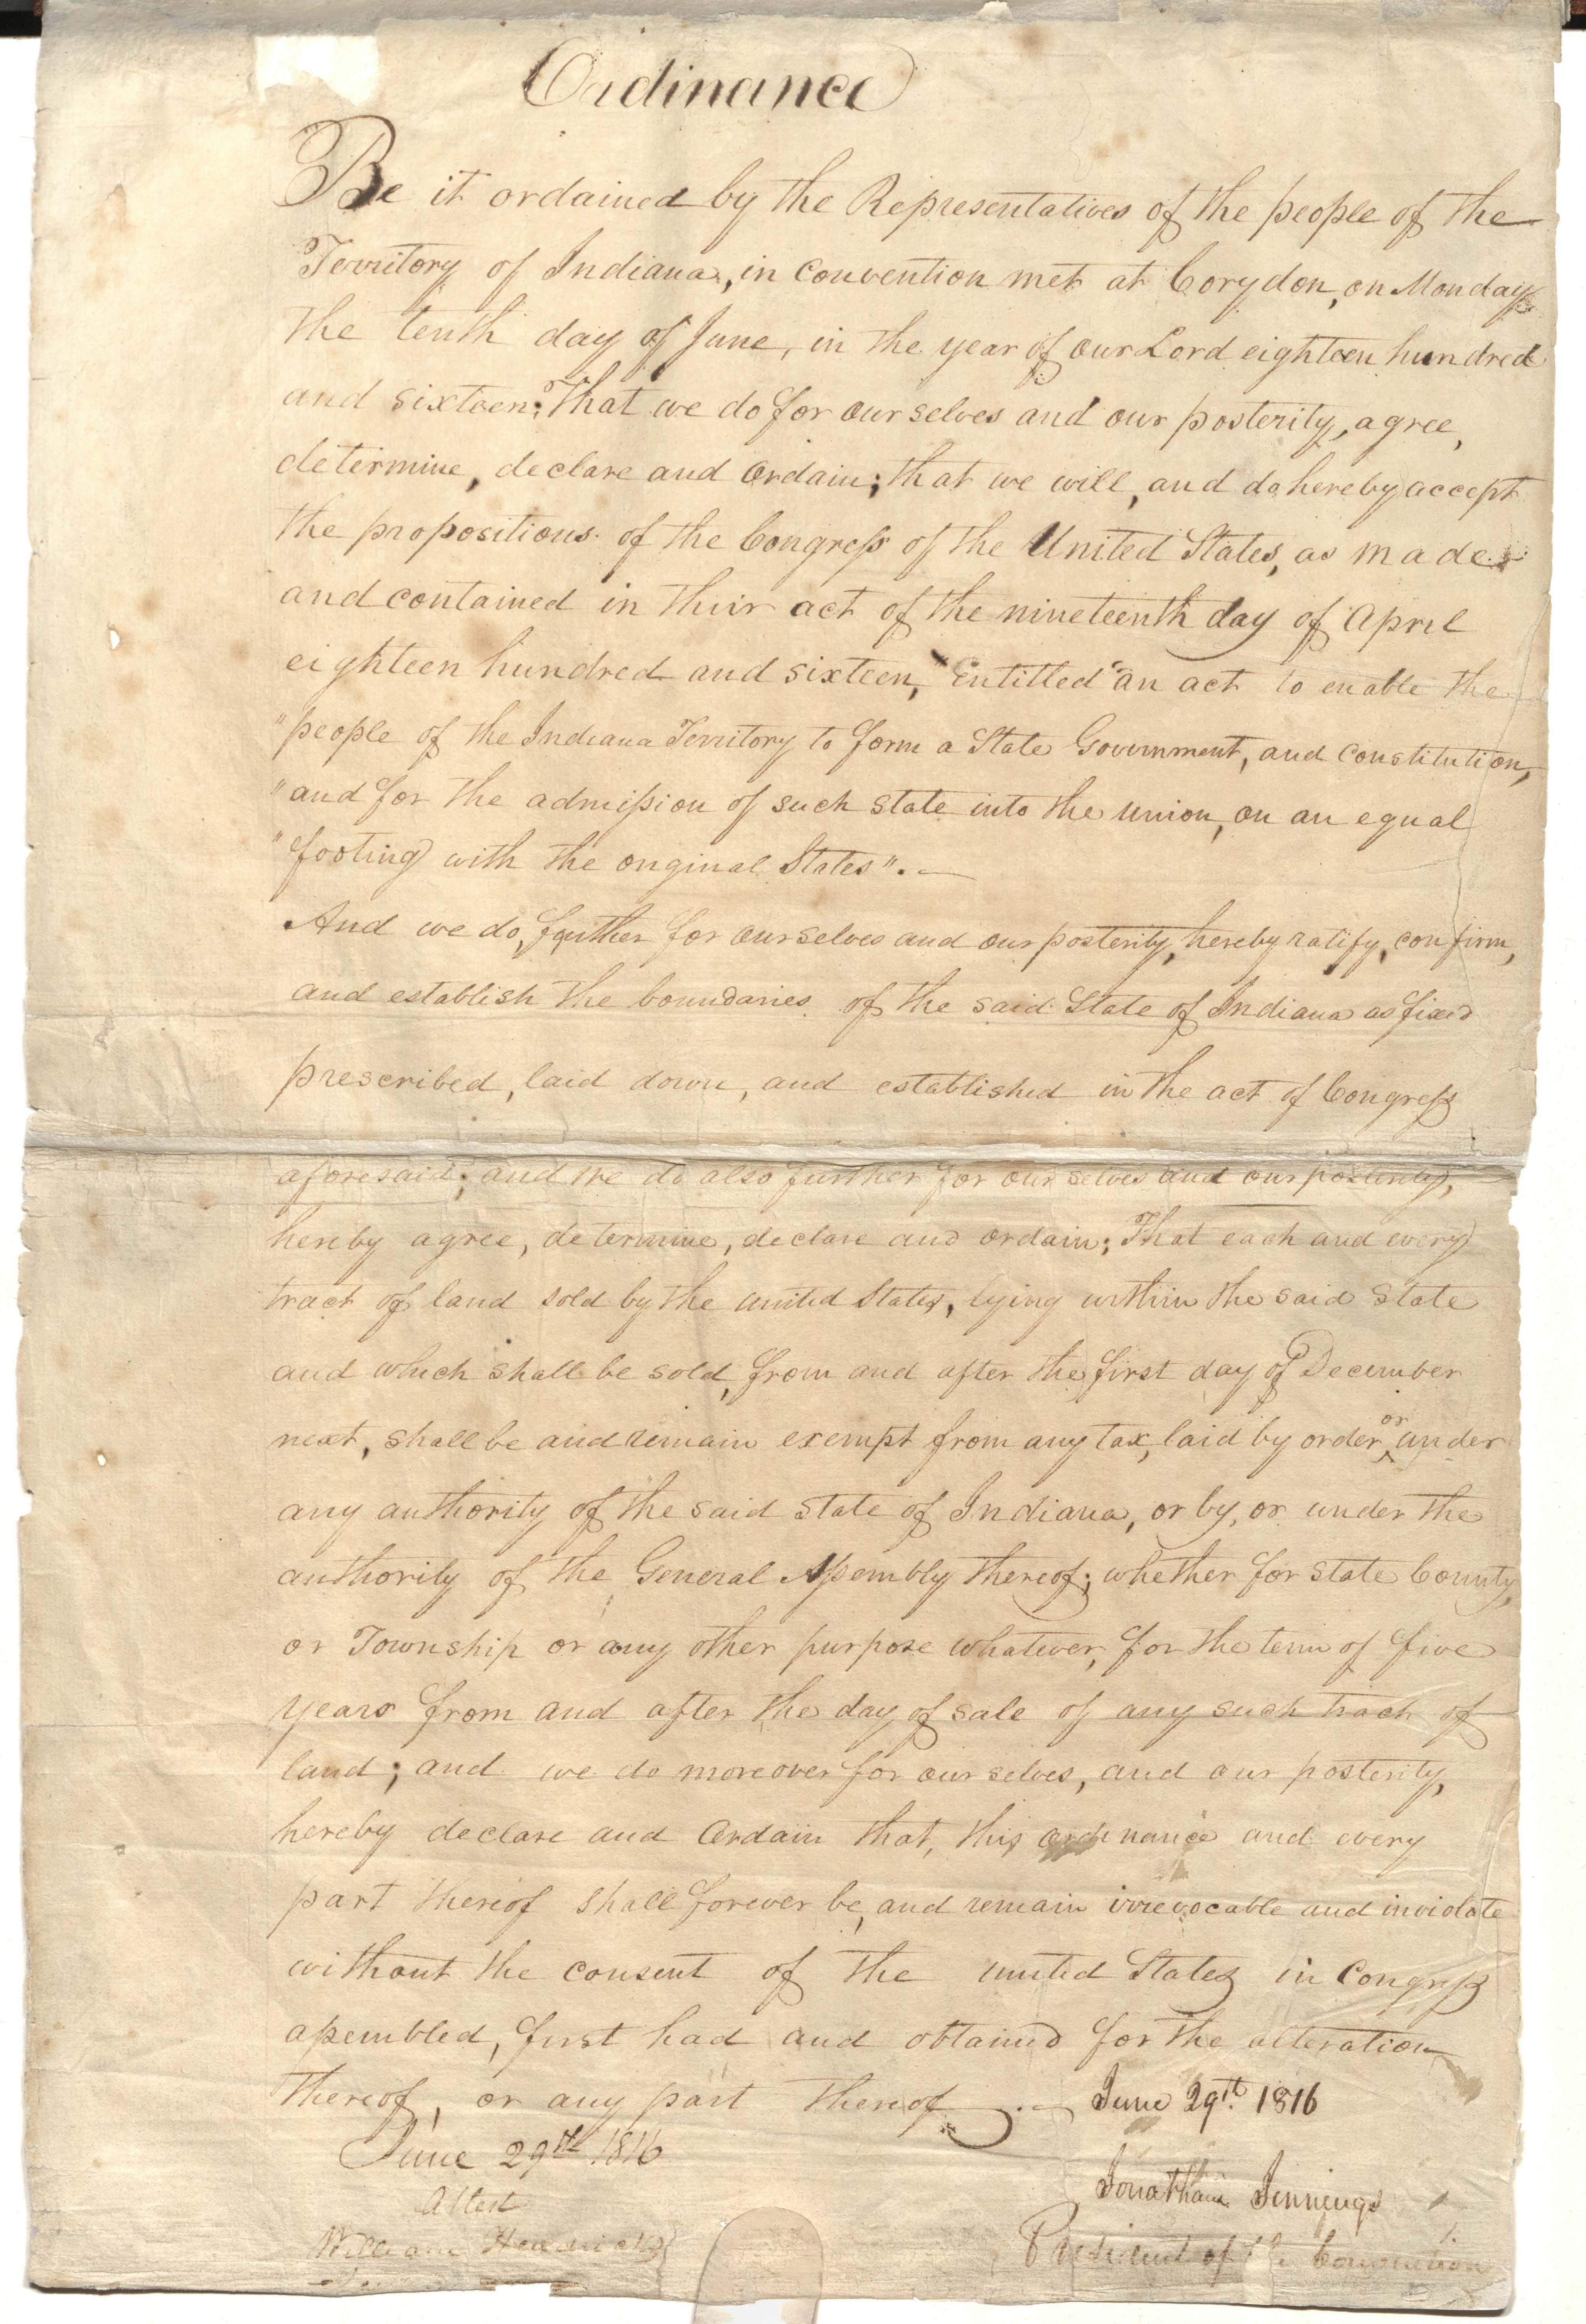 Ordinance
Be it ordained by the Representatives of the people of the
Territory of Indiana, in convention met at Corydon, on Monday
the tenth day of June, in the year of our Lord eighteen hundred
and sixteen: That we do for ourselves and our posterity, agree,
determine, declare and Ordain; that we will, and do hereby accept
the propositions of the Congress of the United States, as made
and contained in their act of the nineteenth day of April
eighteen hundred and sixteen, "Entitled "an act to enable the
"people of the Indiana Territory to form a State Government, and constitution,
"and for the admission of such state into the union, on an equal
"footing with the original States". —
And we do, further for ourselves and our posterity, hereby ratify, confirm,
and establish the boundaries of the said State of Indiana as fixed
prescribed, laid down, and established in the act of Congress
aforesaid; and we do also further for ourselves and our posterity,
hereby agree, determine, declare and ordain; That each and every
tract of land sold by the united States, lying within the said State
and which shall be sold, from and after the first day of December
next, shall be and remain exempt from any tax, laid by order or under
any authority of the said state of Indiana, or by, or under the
authority of the General Assembly thereof; whether for state County,
or Township or any other purpose whatever, for the term of five
years from and after the day of sale of any such tract of
land; and we do moreover for ourselves, and our posterity,
hereby declare and Ordain that, this ordinance and every
part thereof shall forever be, and remain irrevocable and inviolate
without the consent of the united States in Congress
assembled, first had and obtained for the alteration
thereof, or any part thereof. — June 29th. 1816
June 29th 1816
Attest
Jonathan Jennings
William Hendricks
President of the Convention